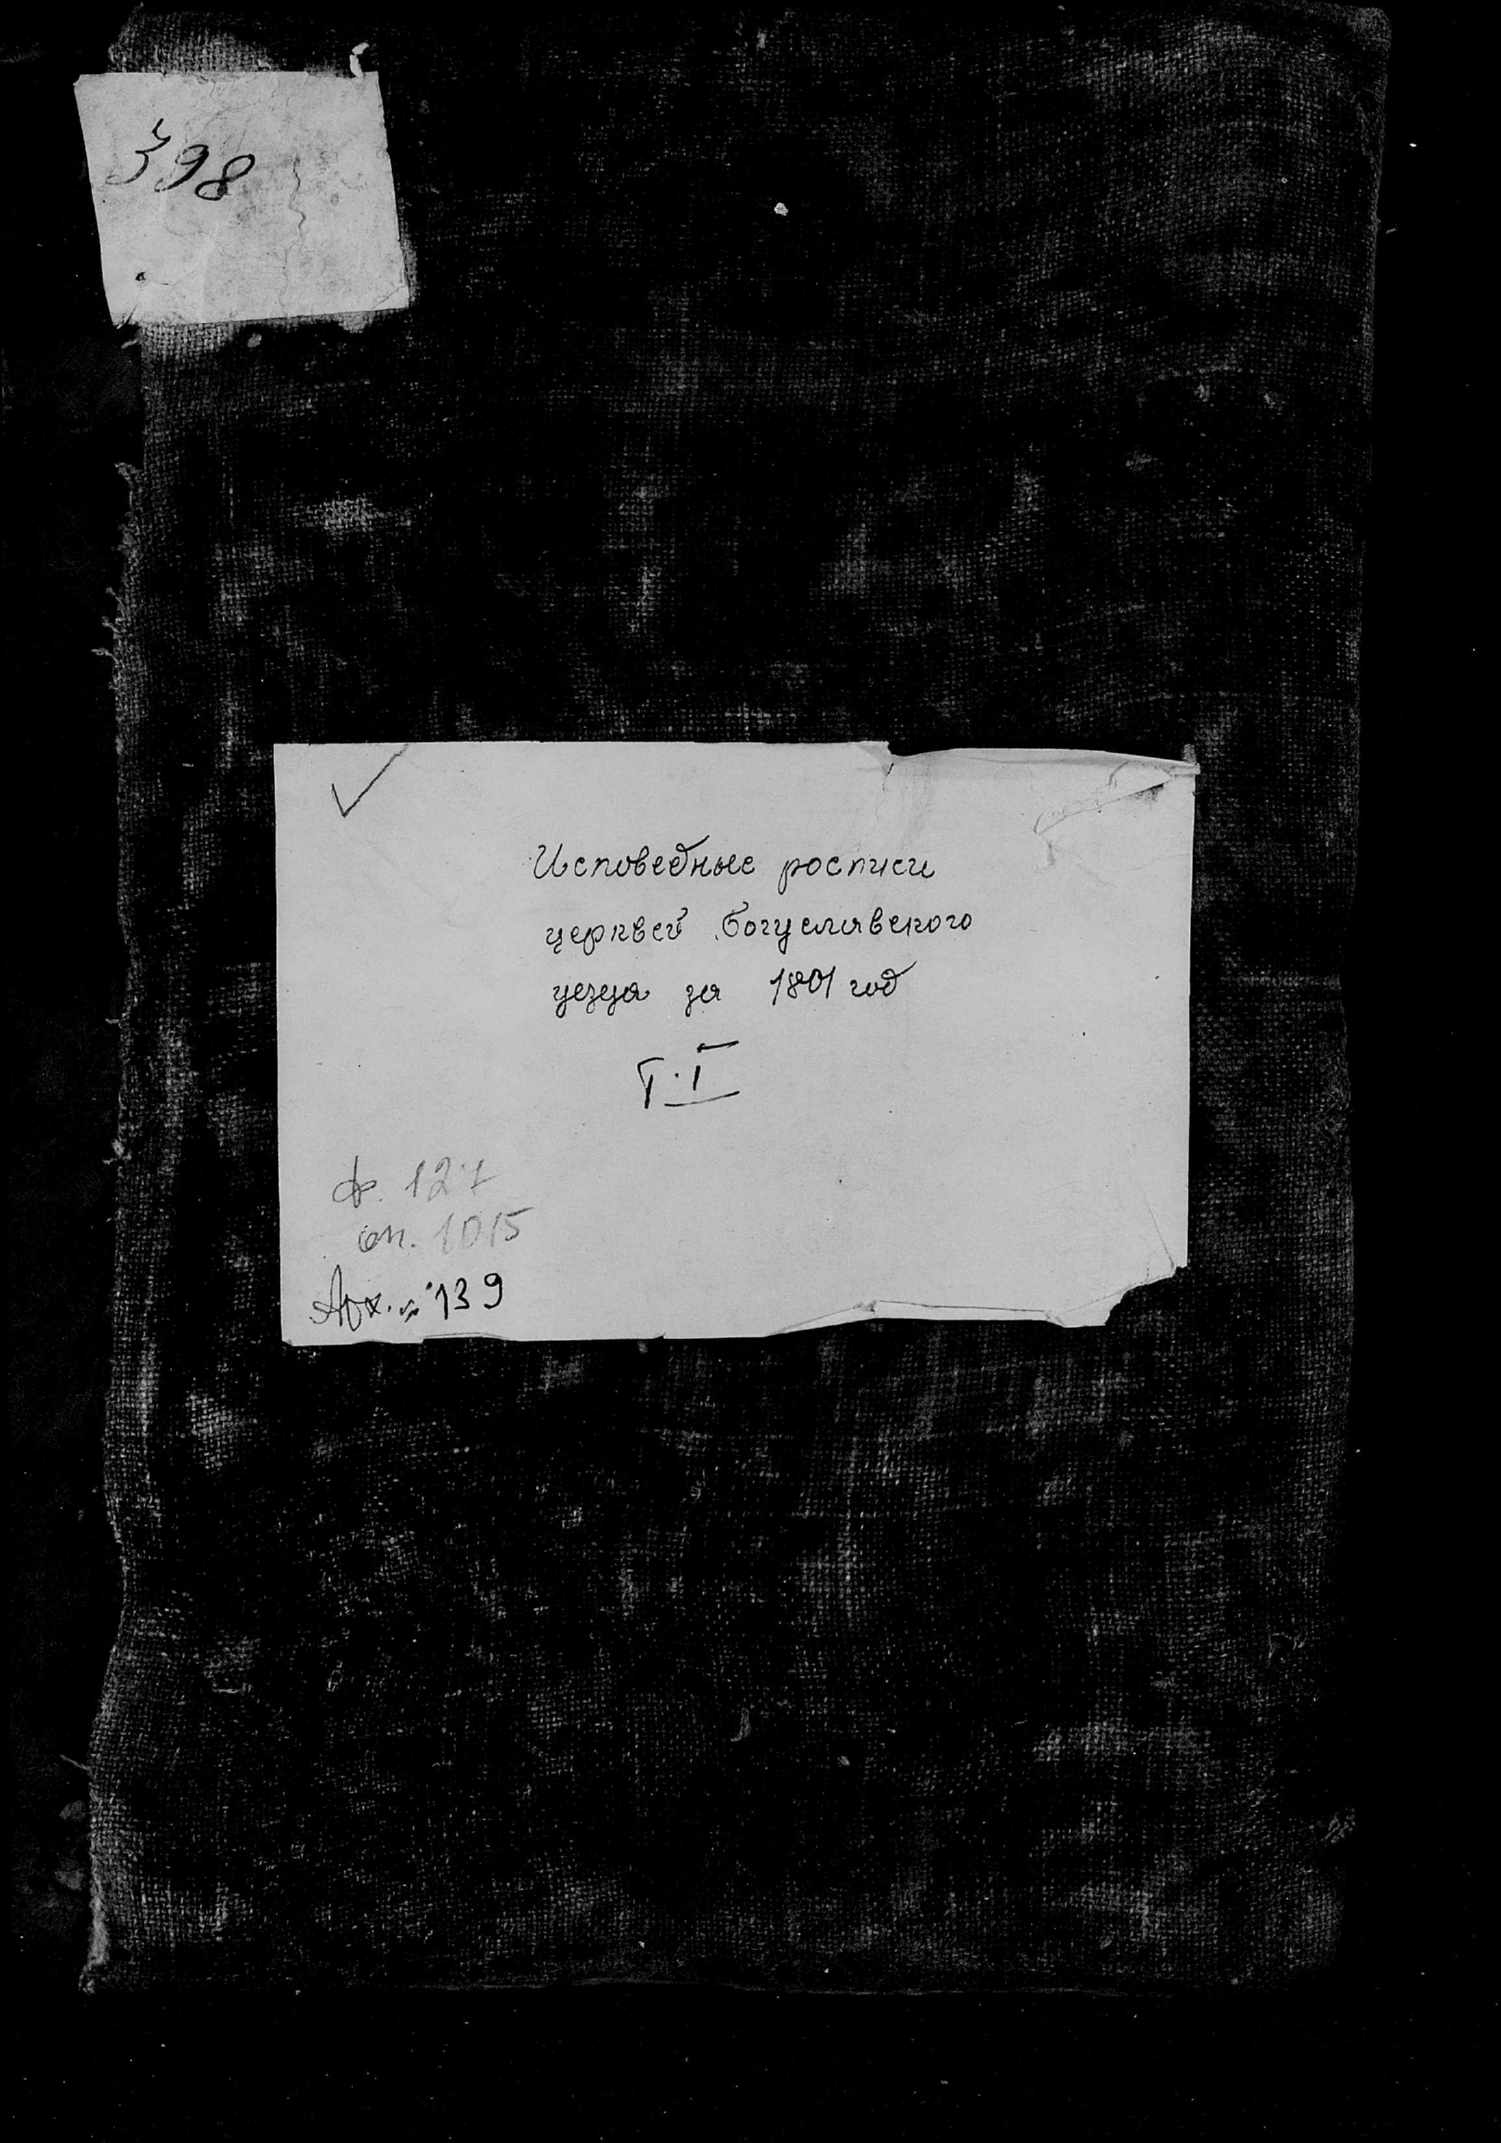 398
Исповедные росписи
церквей Богуславского
уезда за 1801 год
Т. I
ф. 127
оп. 1015
Арх. № 139